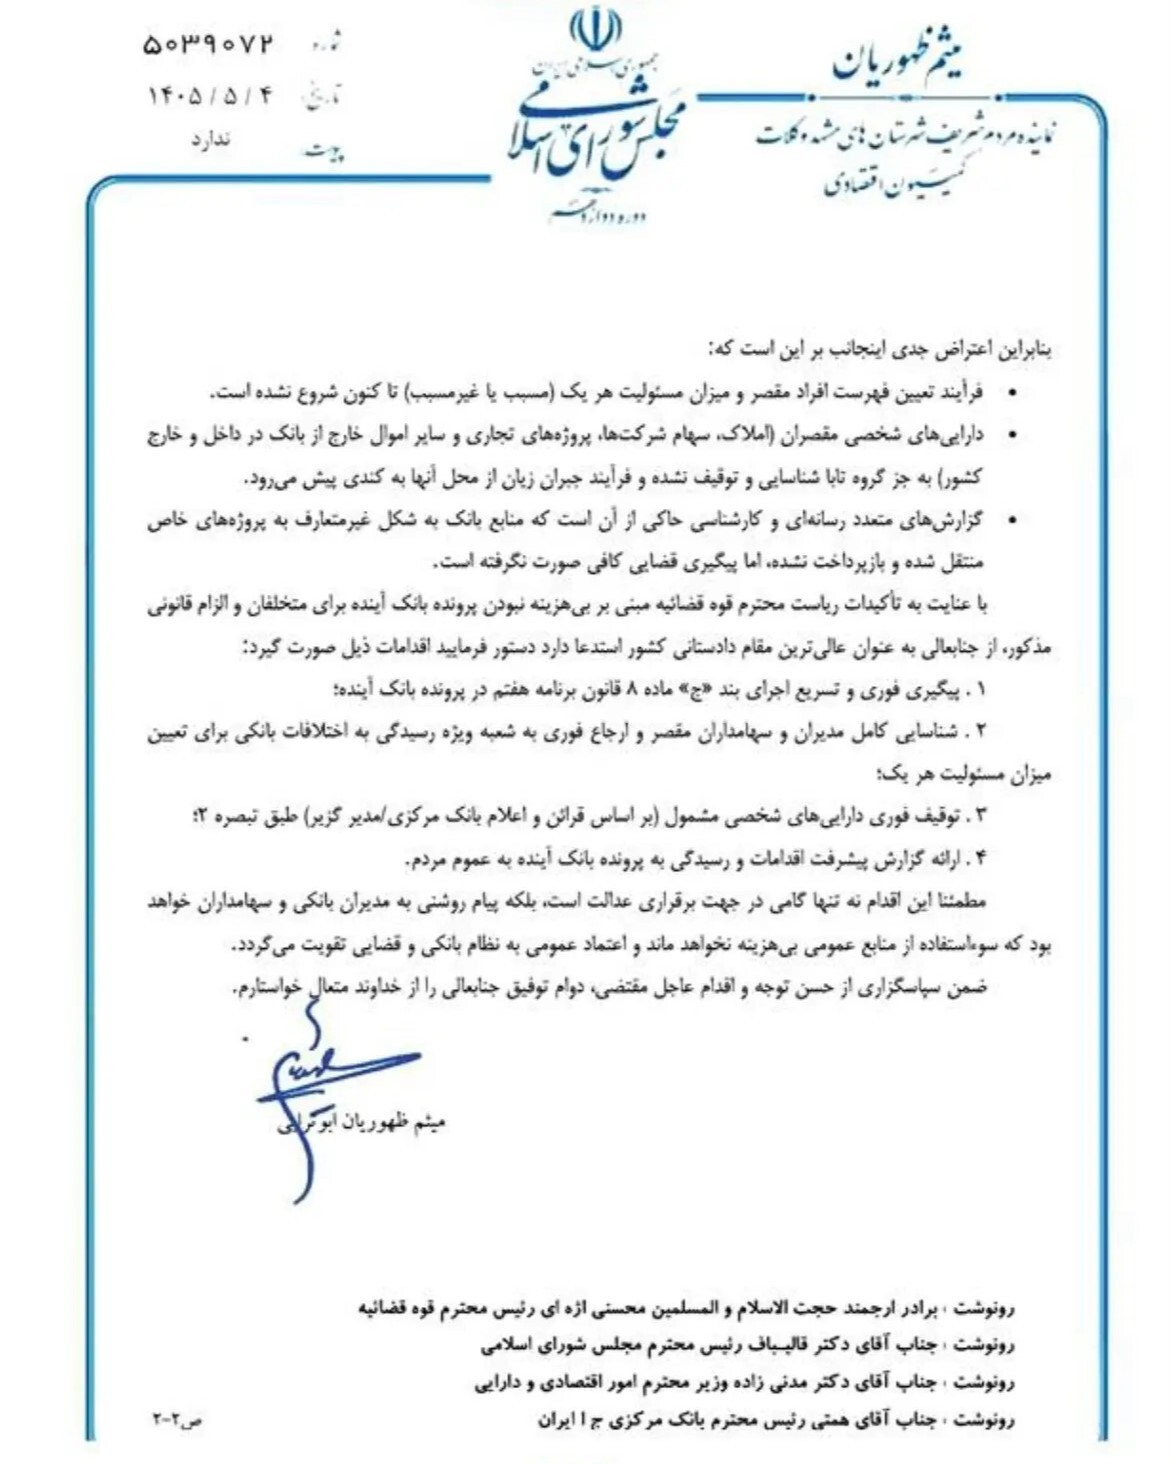 میثم ظهوریان
نماینده مردم شریف شهرستان های مشهد و کلات
کمیسیون اقتصادی
جمهوری اسلامی ایران
مجلس شورای اسلامی
دوره دوازدهم
شماره ۵۰۳۹۰۷۲
تاریخ ۱۴۰۵/۵/۴
پیوست ندارد
بنابراین اعتراض جدی اینجانب بر این است که:
• فرآیند تعیین فهرست افراد مقصر و میزان مسئولیت هر یک (مسبب یا غیرمسبب) تا کنون شروع نشده است.
• دارایی‌های شخصی مقصران (املاک، سهام شرکت‌ها، پروژه‌های تجاری و سایر اموال خارج از بانک در داخل و خارج
کشور) به جز گروه تابا شناسایی و توقیف نشده و فرآیند جبران زیان از محل آنها به کندی پیش می‌رود.
• گزارش‌های متعدد رسانه‌ای و کارشناسی حاکی از آن است که منابع بانک به شکل غیرمتعارف به پروژه‌های خاص
منتقل شده و بازپرداخت نشده، اما پیگیری قضایی کافی صورت نگرفته است.
با عنایت به تأکیدات ریاست محترم قوه قضائیه مبنی بر بی‌هزینه نبودن پرونده بانک آینده برای متخلفان و الزام قانونی
مذکور، از جنابعالی به عنوان عالی‌ترین مقام دادستانی کشور استدعا دارد دستور فرمایید اقدامات ذیل صورت گیرد:
۱ . پیگیری فوری و تسریع اجرای بند «ج» ماده ۸ قانون برنامه هفتم در پرونده بانک آینده؛
۲ . شناسایی کامل مدیران و سهامداران مقصر و ارجاع فوری به شعبه ویژه رسیدگی به اختلافات بانکی برای تعیین
میزان مسئولیت هر یک؛
۳ . توقیف فوری دارایی‌های شخصی مشمول (بر اساس قرائن و اعلام بانک مرکزی/مدیر گزیر) طبق تبصره ۲؛
۴ . ارائه گزارش پیشرفت اقدامات و رسیدگی به پرونده بانک آینده به عموم مردم.
مطمئنا این اقدام نه تنها گامی در جهت برقراری عدالت است، بلکه پیام روشنی به مدیران بانکی و سهامداران خواهد
بود که سوءاستفاده از منابع عمومی بی‌هزینه نخواهد ماند و اعتماد عمومی به نظام بانکی و قضایی تقویت می‌گردد.
ضمن سپاسگزاری از حسن توجه و اقدام عاجل مقتضی، دوام توفیق جنابعالی را از خداوند متعال خواستارم.
میثم ظهوریان ابوترابی
رونوشت : برادر ارجمند حجت الاسلام و المسلمین محسنی اژه ای رئیس محترم قوه قضائیه
رونوشت : جناب آقای دکتر قالیباف رئیس محترم مجلس شورای اسلامی
رونوشت : جناب آقای دکتر مدنی زاده وزیر محترم امور اقتصادی و دارایی
رونوشت : جناب آقای همتی رئیس محترم بانک مرکزی ج ا ایران
ص۲-۲